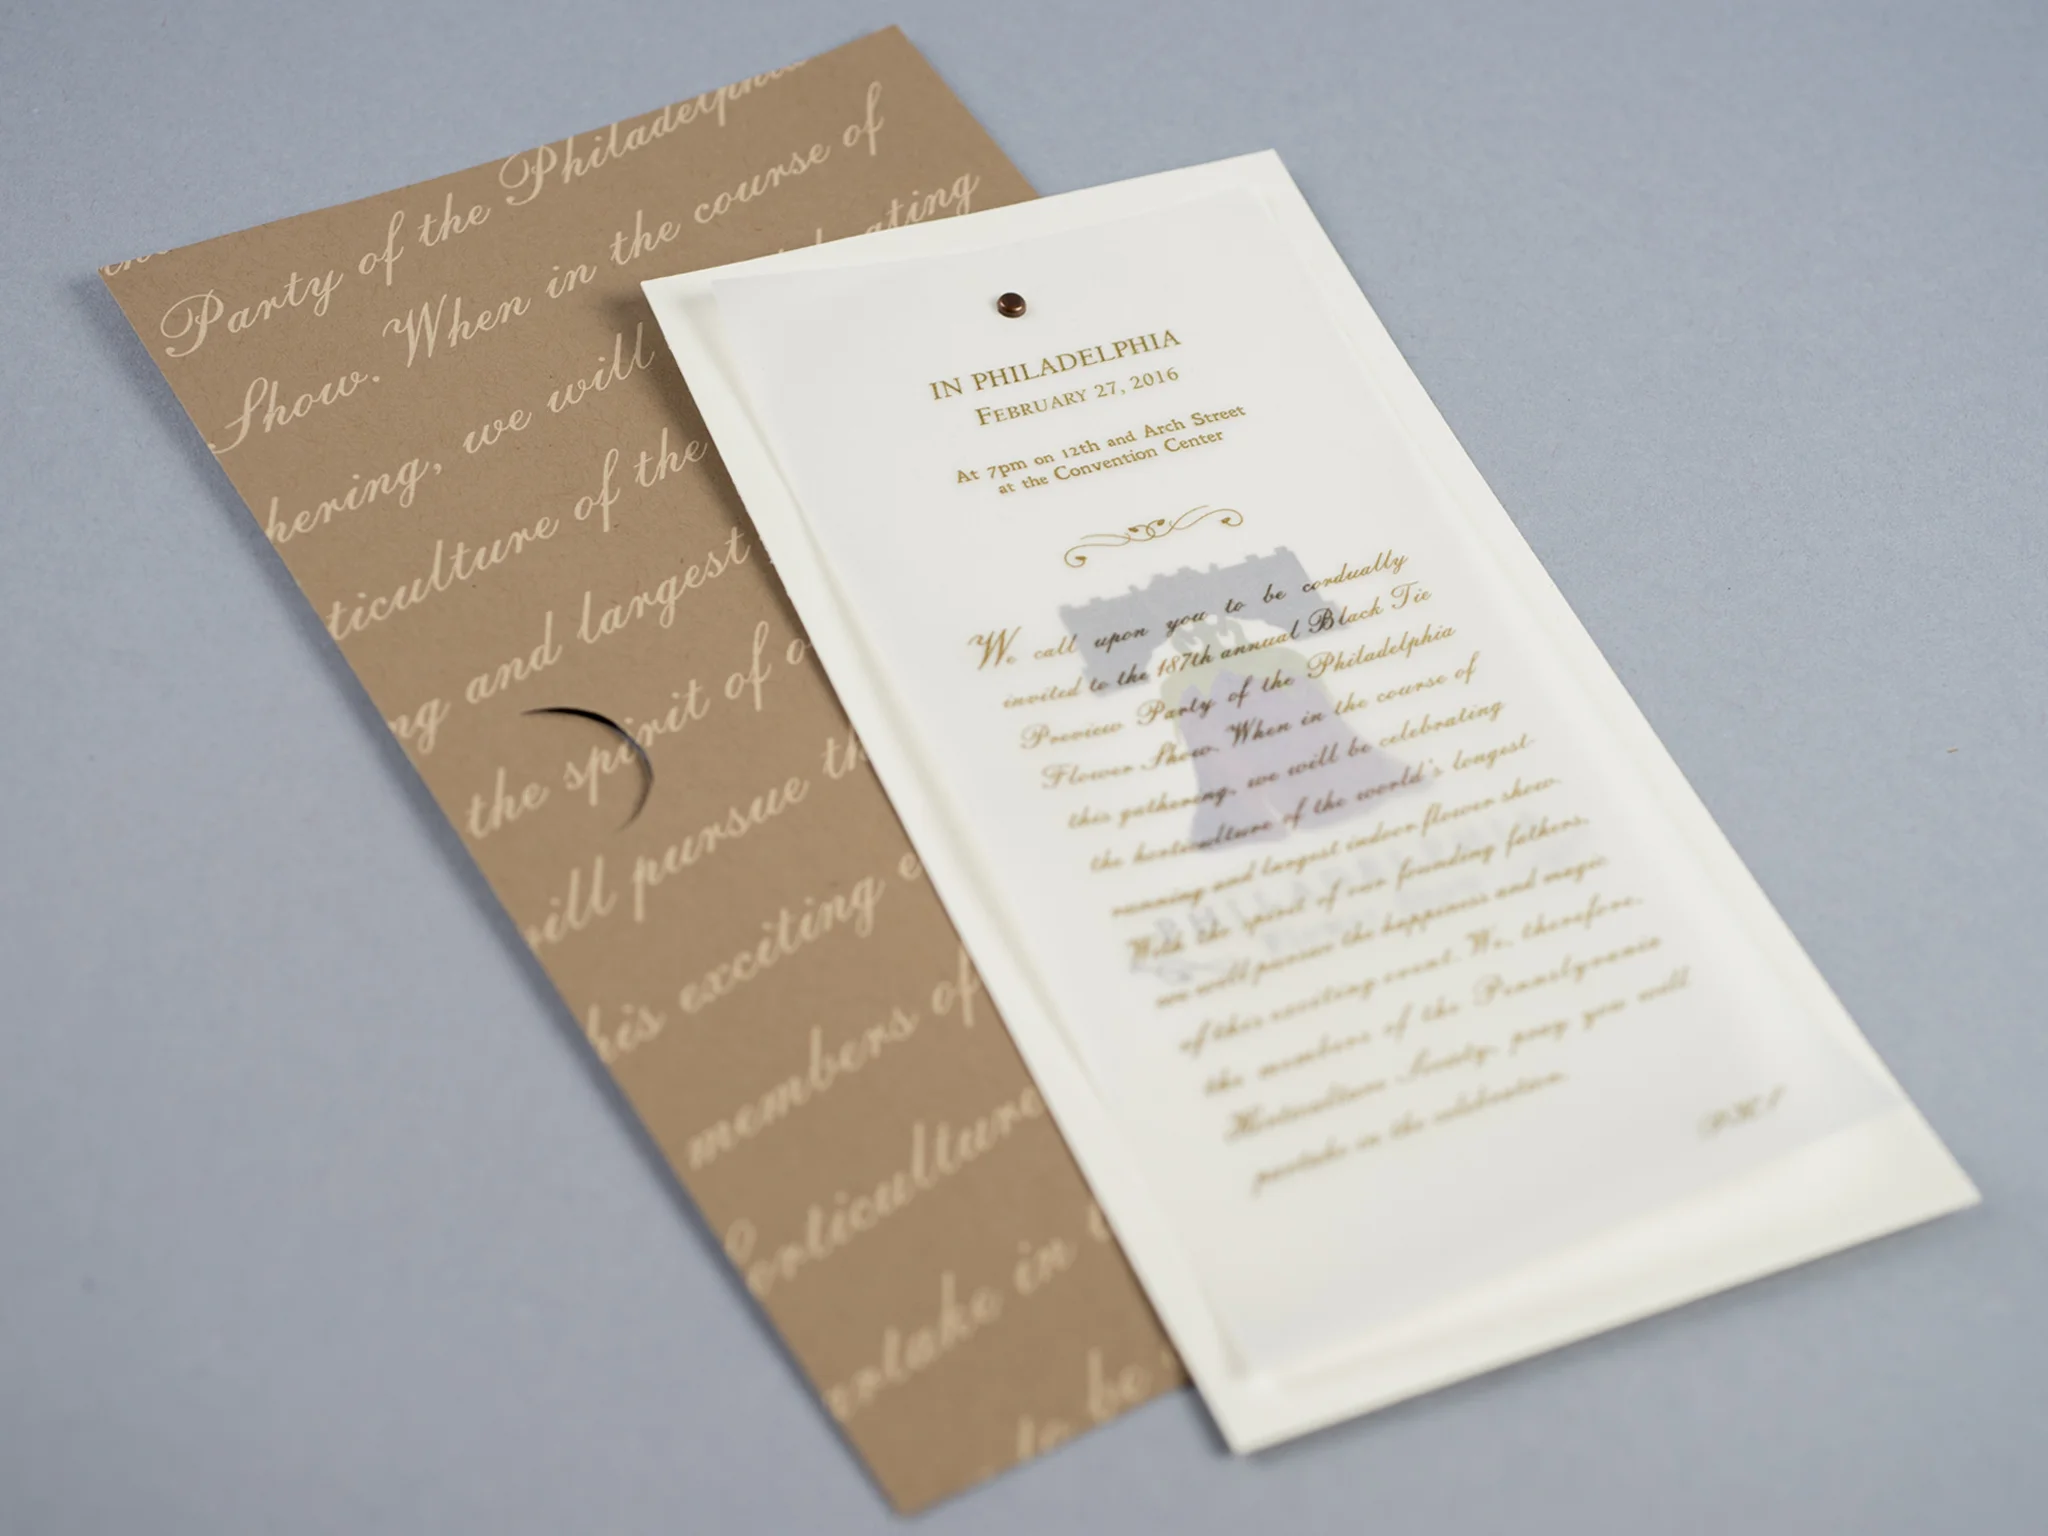 Party of the Philadelphia
Show. When in the course of
hering, we will
ating
ticulture of the
ng and largest
the spirit of o
will pursue th
his exciting e
members of
orticulture
artake in t
to be
IN PHILADELPHIA
FEBRUARY 27, 2016
At 7pm on 12th and Arch Street
at the Convention Center
We call upon you to be cordually
invited to the 187th annual Black Tie
Preview Party of the Philadelphia
Flower Show. When in the course of
this gathering, we will be celebrating
the horticulture of the world's longest
running and largest indoor flower show.
With the spirit of our founding fathers,
we will pursue the happiness and magic
of this exciting event. We, therefore,
the members of the Pennslyvania
Horticulture Society, pray you will
partake in the celebration.
PHS